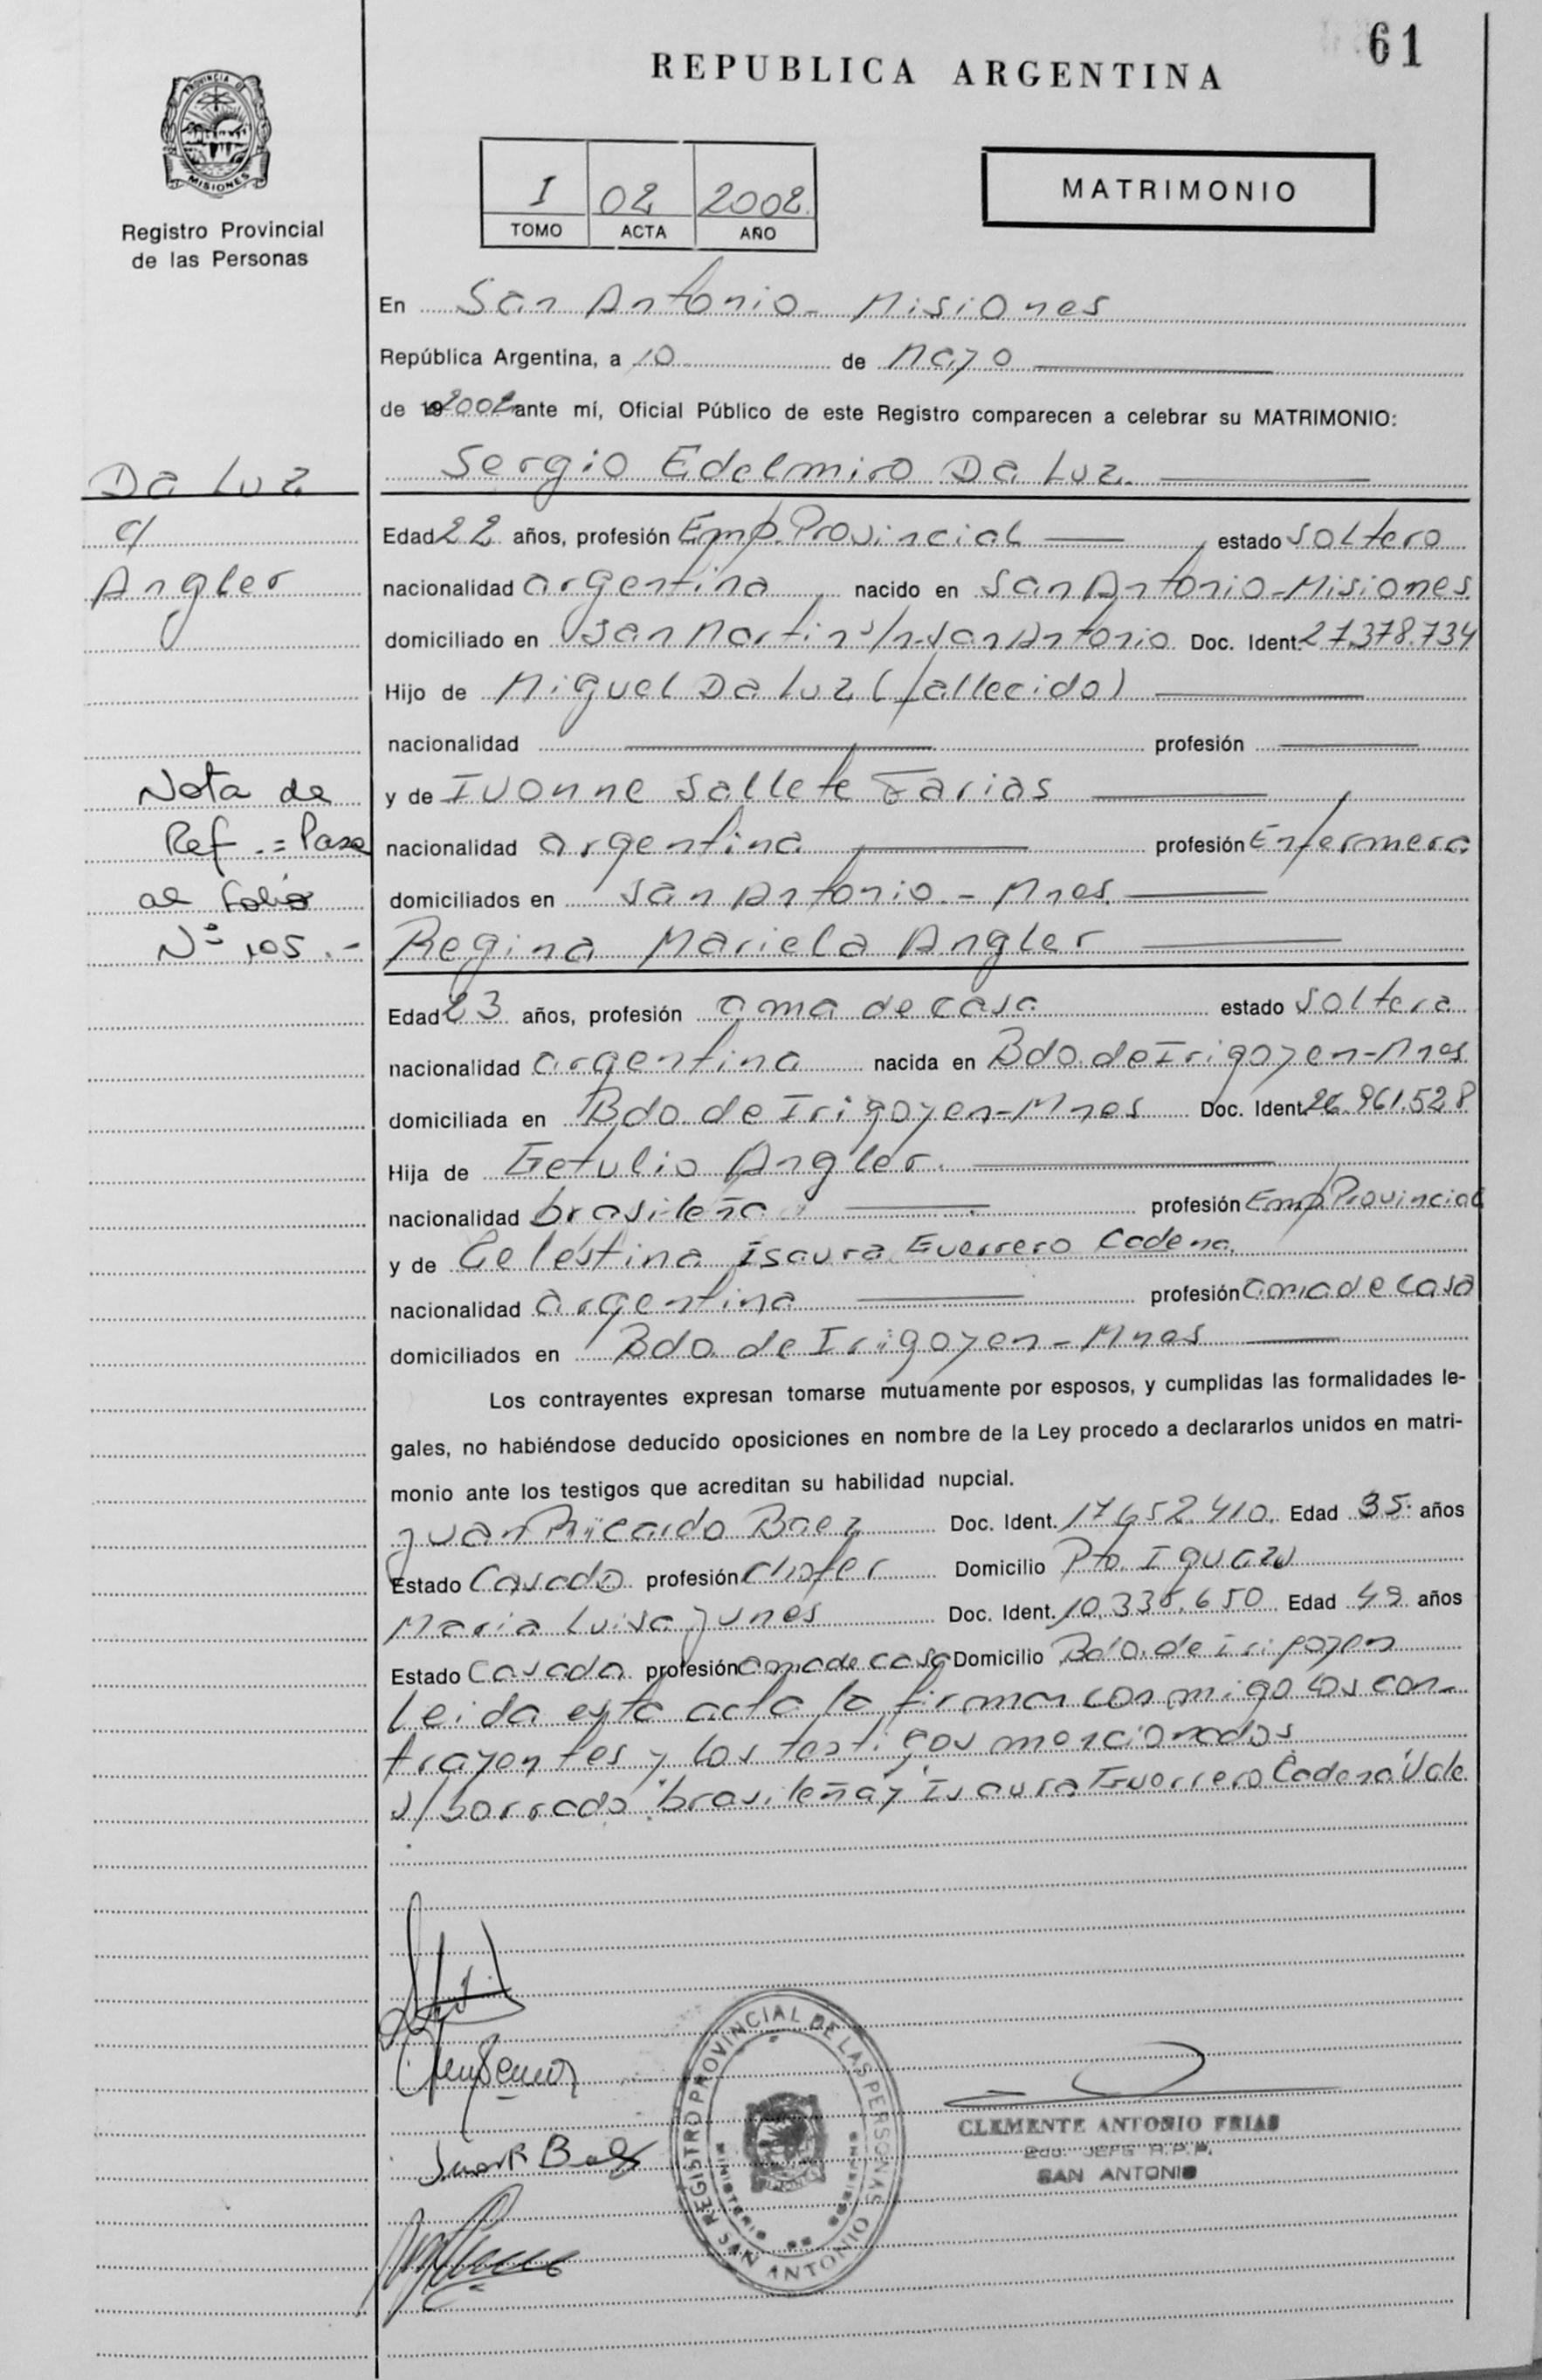 61
REPUBLICA ARGENTINA
PROVINCIA DE
MISIONES
Registro Provincial
de las Personas
I 02 2002.
TOMO ACTA AÑO
MATRIMONIO
En San Antonio - Misiones
República Argentina, a 10 de Mayo
de 19 2002 ante mí, Oficial Público de este Registro comparecen a celebrar su MATRIMONIO:
Da Luz
c/
Angler
Sergio Edelmiro Da Luz.
Edad 22 años, profesión Emp. Provincial estado soltero
nacionalidad argentina nacido en San Antonio - Misiones.
domiciliado en San Martin s/n - San Antonio Doc. Ident. 27.378.734
Hijo de Miguel Da Luz (fallecido)
nacionalidad profesión
y de Ivonne Sallete Farias
nacionalidad argentina profesión Enfermera
domiciliados en San Antonio. - Mnes.
Nota de
Ref.= Pasa
al folio
Nº 105.-
Regina Mariela Angler
Edad 23 años, profesión ama de casa estado soltera
nacionalidad argentina nacida en Bdo. de Irigoyen - Mnes.
domiciliada en Bdo. de Irigoyen - Mnes Doc. Ident. 26.961.528
Hija de Getulio Angler.
nacionalidad brasileña profesión Emp Provincial
y de Celestina Isaura Guerrero Cadena.
nacionalidad argentina profesión ama de casa
domiciliados en Bdo. de Irigoyen - Mnes
Los contrayentes expresan tomarse mutuamente por esposos, y cumplidas las formalidades le-
gales, no habiéndose deducido oposiciones en nombre de la Ley procedo a declararlos unidos en matri-
monio ante los testigos que acreditan su habilidad nupcial.
Juan Ricardo Baez Doc. Ident. 17.652.410. Edad 35. años
Estado Casado profesión chofer Domicilio Pto. Iguazu
Maria Luisa Junes Doc. Ident. 10.336.650 Edad 49 años
Estado Casada profesión ama de casa Domicilio Bdo. de Irigoyen
Leida esta acta la firman conmigo los con-
trayentes y los testigos mencionados
s/borrado: brasileña y Isaura Guerrero Cadena Vale
Juan R Baez
REGISTRO PROVINCIAL DE LAS PERSONAS
MINISTERIO DE GOBIERNO
SAN ANTONIO
CLEMENTE ANTONIO FRIAS
JEFE R.P.P.
SAN ANTONIO